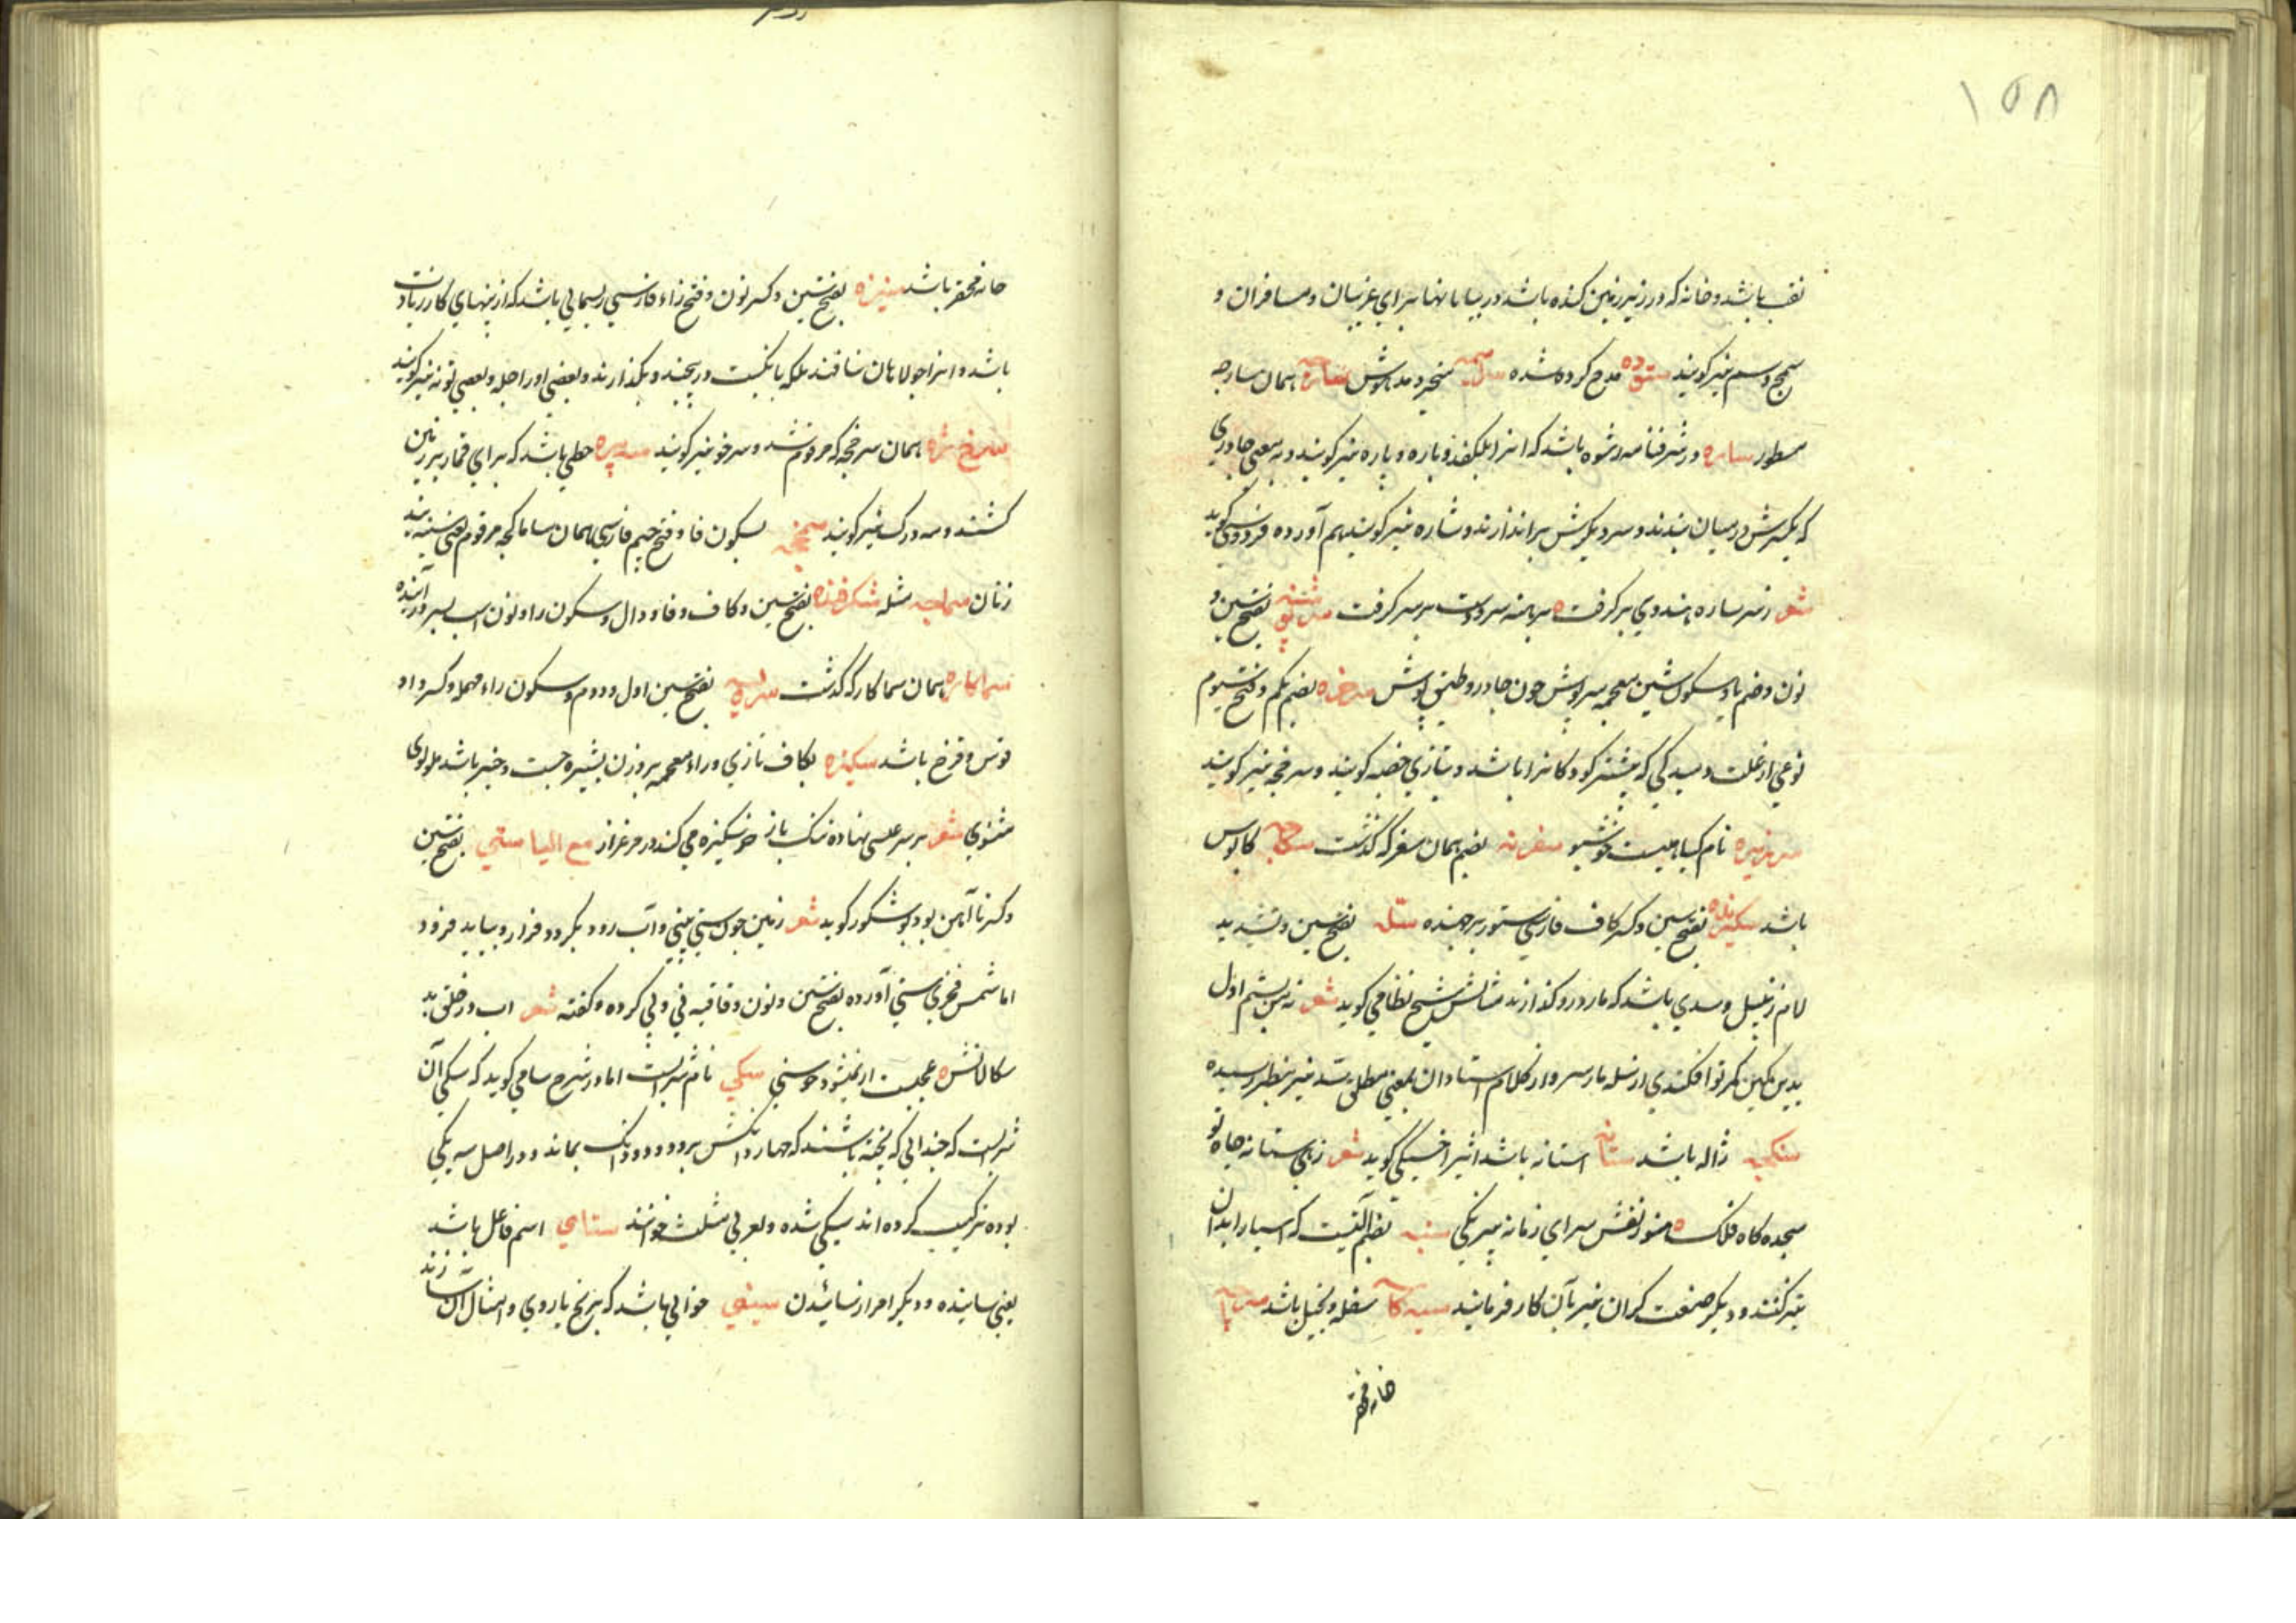 ١٥٨
نقب باشد و خانه که در زیر زمین کنده باشد در بیابانها برای غریبان و مسافران و
سمج و سم نیز گویند ستوده مدح کرده شده متحیر و مدهوش همان سارجه
مسطور ساره در شرفنامه رشوه باشد که انرا بلکفد و پاره نیز گویند و به معنی چادری
که یکسرش در میان بندند و سر دیگرش بر سر اندازند و شاره نیز گویند هم آورده فردوسی گوید
شعر ز سر ساره هندوی برگرفت برهنه سر و دست بر سر گرفت بفتح سین و
نون و ضم با و سکون شین معجمه سرپوش چون چادر و طبق پوش سرخژه بضم یکم و فتح سیوم
نوعی از علت دمیدگی که بیشتر کودکانرا باشد و بتازی حصبه گویند و سرخچه نیز گویند
نام گیاهیست خوشبو سغرنه بضم همان سغر که گذشت سکاچه کابوس
باشد سکیزنده بفتح سین و کسر کاف فارسی ستور برجهنده سله بفتح سین و تشدید
لام زنبیل و سبدی باشد که مار در و گذارند مثالش شیخ نظامی گوید شعر نه من بستم اول
بدین کین کمر تو افکندی از سله مار سر و از کلام استادان بمعنی مطلق سبد نیز بنظر رسیده
سنگچه ژاله باشد ستانه استانه باشد اثیر اخسیکتی گوید شعر زهی ستانه جاه تو
سجده گاه فلک هنوز نقش سرای زمانه بیرنگی
تیز کنند و دیگر صنعت گران نیز بآن کار فرمایند سیه کاسه سفله و بخیل باشد
خانه محقر
خانه محقر باشد بفتح سین و کسر نون و فتح زاء فارسی ریسمانی باشد که از پنهای کار زیادت
باشد و انرا جولاهان نبافند بلکه بانگشت در پیچند و بگذارند و بعضی اورا
سرخژه همان سرخجه که مرقوم شد و سرخو نیز گویند خطی باشد که برای قمار بر زمین
کشند و سه درک نیز گویند بسکون فا و فتح جیم فارسی همان ساماکچه مرقوم یعنی سینه بند
زنان سماجه مثله شکرفنده بفتح سین و کاف و فا و دال و سکون را و نون اسب بسر درآینده
سماکاره همان سماکار که گذشت بفتح سین اول و دوم و سکون راء مهمله و کسر واو
قوس و قزح باشد سکیزه بکاف تازی و زاء معجمه بروزن بشیره جست و خیز باشد مولوی
مثنوی شعر بر سر عیسی نهاده تنگ بار خر سکیزه می کند در مرغزار مع الیا ستی بفتح سین
و کسر تا آهن بود بوشکور گوید شعر زمین چون ستی بینی و آب رود بگردد فراز و بیاید فرود
اما شمس فخری سنی آورده بفتح سین و نون و قافیه فنی و لی کرده و گفته شعر آب در حلق بد
سگالانش عجبست ار نمیشود چو سنی سیکی نام شرابست اما در شرح سامی گوید که سیکی آن
شرابست که چندانی که پخته باشند که چهار دانگش برود و دو دانگ بماند و در اصل سه یکی
بوده ترکیب کرده اند سیکی شده و بعربی مثلث خوانند ستای اسم فاعل باشد
یعنی ساینده و دیگر امر از سائیدن سینی خوانی باشد که ببرنج یا روی و امثال آن سازند